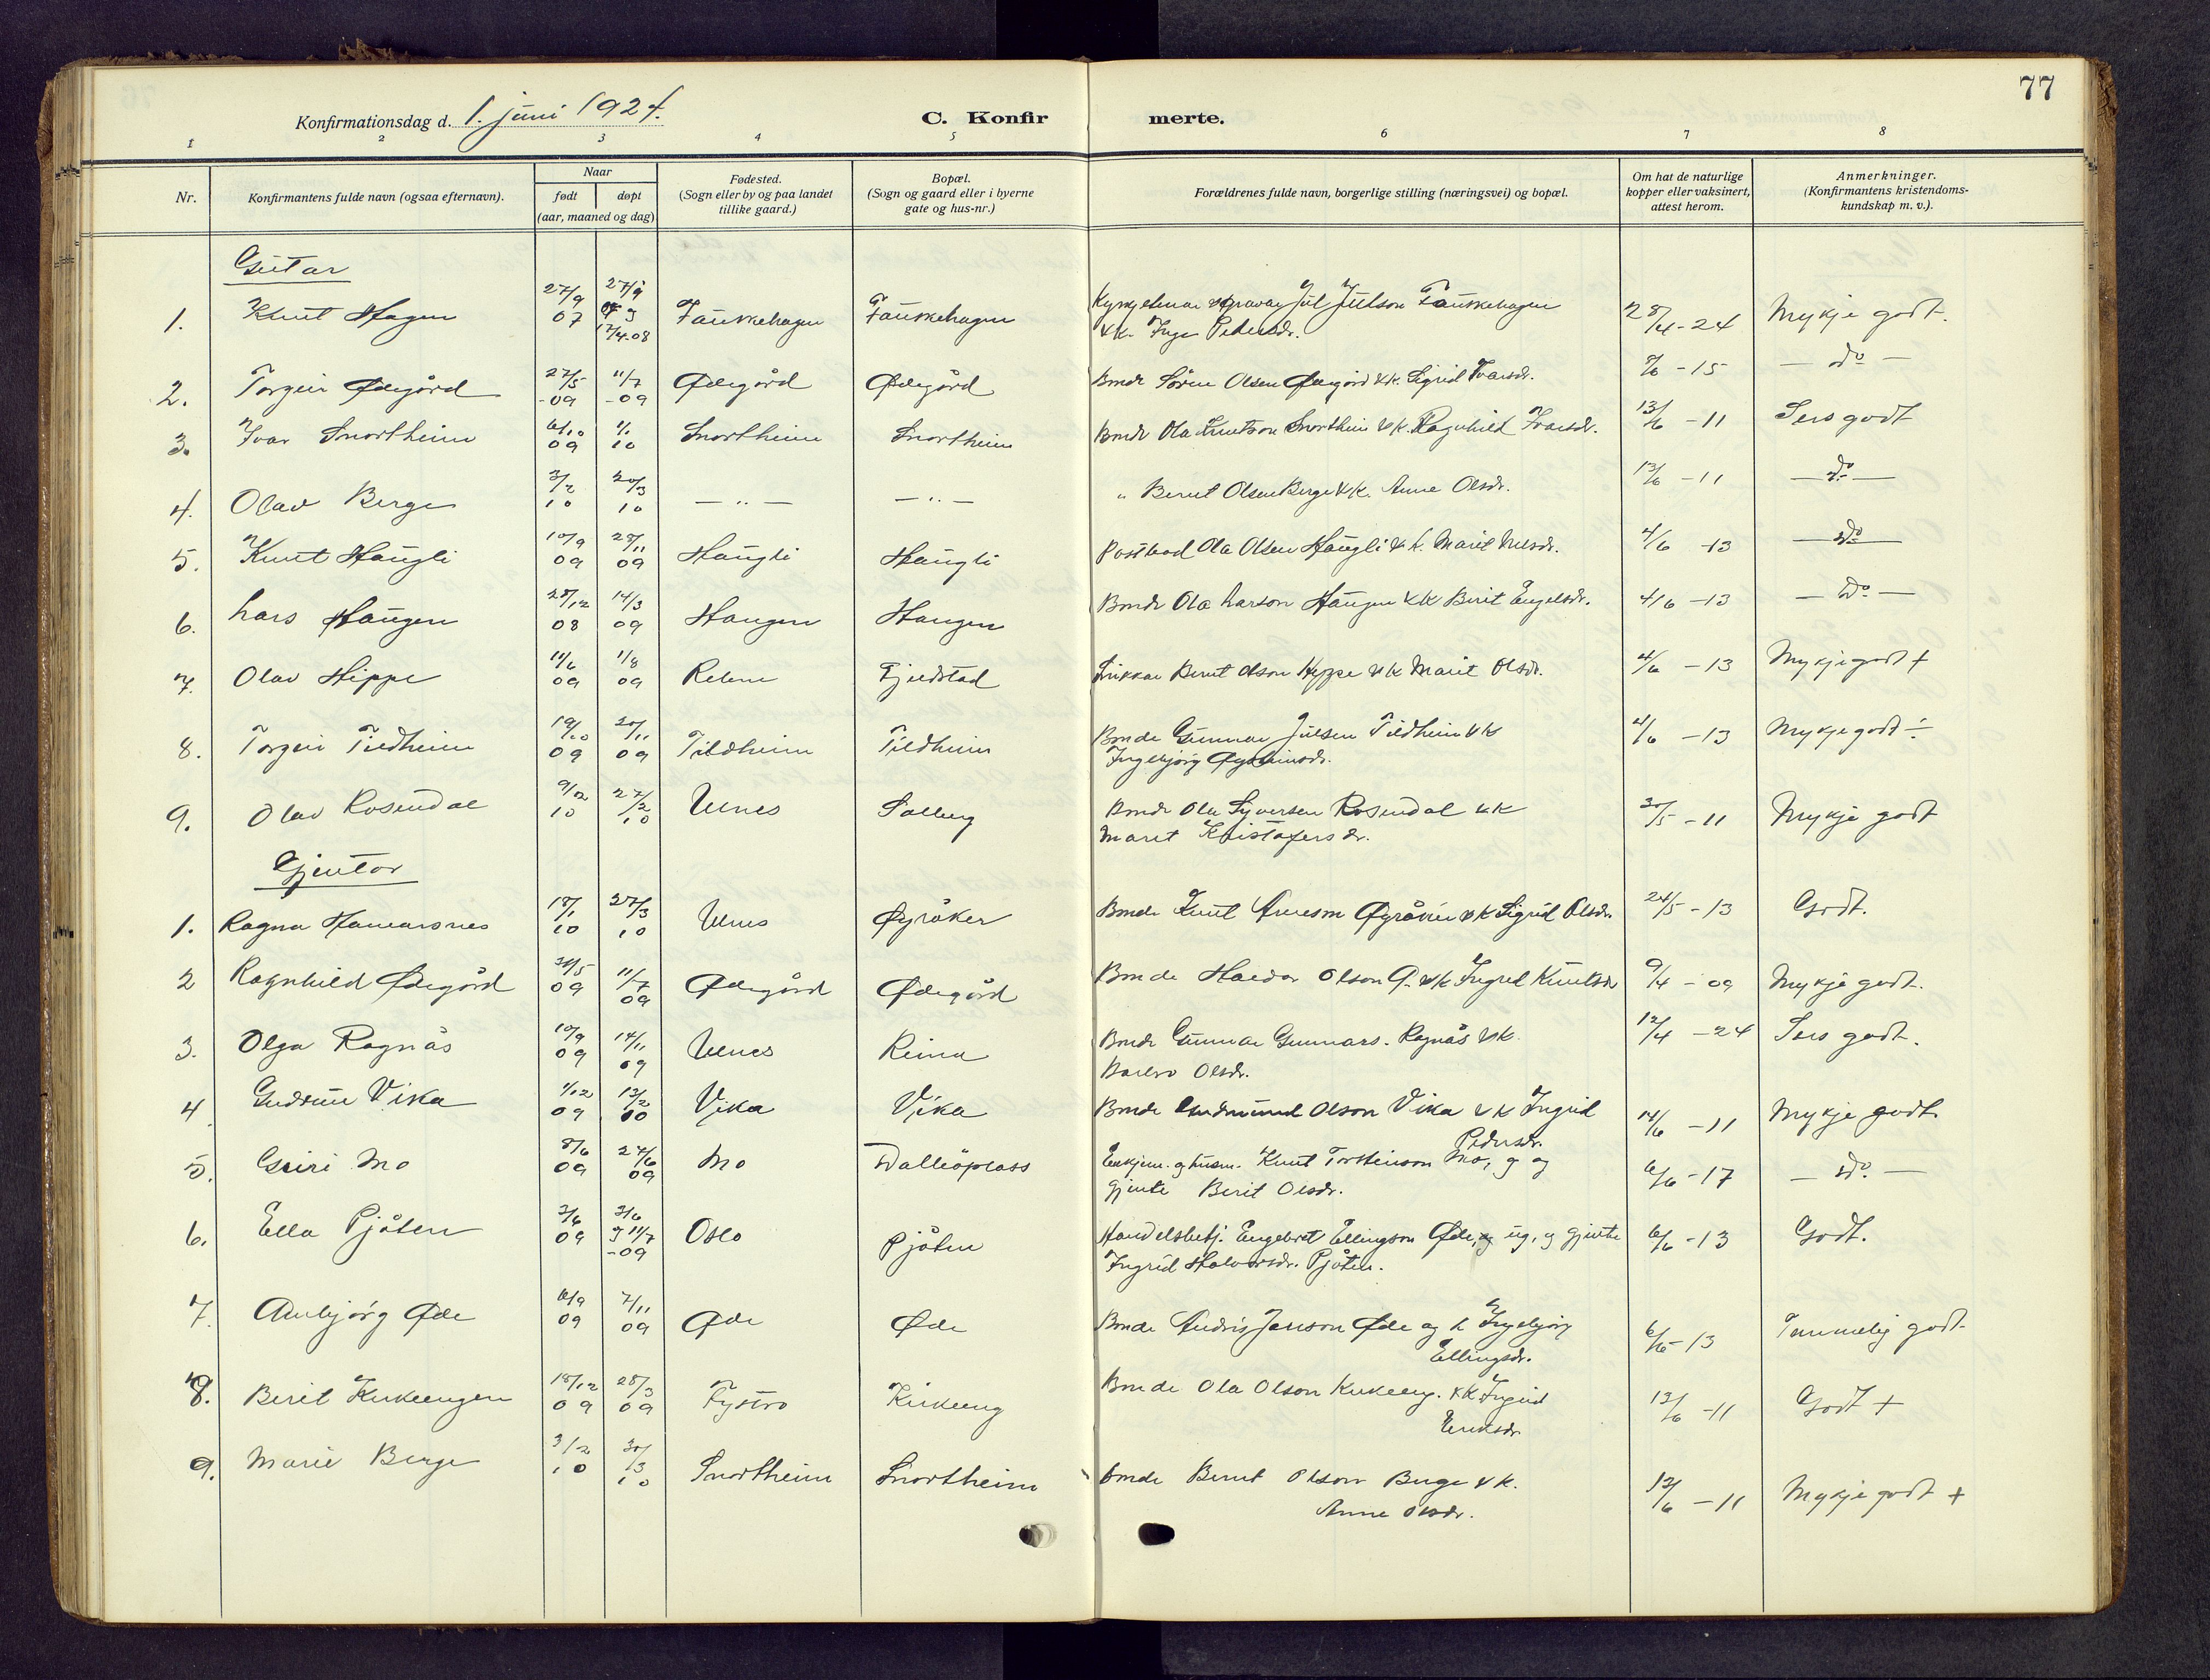 77
Konfirmationsdag d. 1. juni 1924.
C. Konfir
merte.
1 2 3 4 5 6 7 8
Nr.
Konfirmantens fulde navn (ogsaa efternavn).
Naar
født døpt
(aar, maaned og dag)
Fødested.
(Sogn eller by og paa landet
tillike gaard.)
Bopæl.
(Sogn og gaard eller i byerne
gate og hus-nr.)
Forældrenes fulde navn, borgerlige stilling (næringsvei) og bopæl.
Om hat de naturlige
kopper eller vaksinert,
attest herom.
Anmerkninger.
(Konfirmantens kristendoms-
kundskap m. v.).
Gutar
1. Knut Hagen 27/9 07 27/9 17/4-08 Fauskehagen Fauskehagen Jul Julson Fauskehagen 28/4-24 Mykje godt.
&k. Inga Pedersdr.
2. Torgeir Ødegård 27/5 -09 11/7 -09 Ødegård Ødegård Bonde Søren Olsen Ødegård &k. Sigrid Ivarsdr. -15 — do —
3. Ivar Snortheim 6/10 09 1/1 10 Snortheim Snortheim Bonde Ola Knutson Snortheim &k. Ragnhild Ivarsdr. 13/6 -11 Sers godt
4. Olav Berge 3/2 10 20/3 10 — " — — " — " Bernt Olsen Berge &k. Anne Olsdr. 13/6 -11 — do —
5. Knut Haugli 10/9 09 28/11 09 Haugli Haugli Postbod Ola Olsen Haugli &k. Marit Nilsdr. 4/6 -13 — do —
6. Lars Haugen 28/12 08 14/3 09 Haugen Haugen Bonde Ola Larson Haugen &k Berit Engelsdr. 4/6 -13 — do —
7. Olav Hippe 11/6 09 1/8 09 Reinen Bernt Olson Hippe &k Marit Olsdr. 4/6 -13 Mykje godt +
8. Torgeir Tildheim 19/10 09 20/11 09 Tildheim Tildheim Bonde Gunnar Julsen Tildheim &k 4/6 -13 Mykje godt ÷
Ingebjørg
9. Olav Rosendal 9/2 10 27/2 10 Ulnes Solberg Bonde Ola Syversen Rosendal &k 30/5 -11 Mykje godt
Marit Kristofersdr.
Gjentor
1. Ragna Hamarsnes 18/1 10 27/3 10 Ulnes Øyråker Bonde Knut Arneson Øyråker &k Sigrid Olsdr. 24/5 -13 Godt.
2 Ragnhild Ødegård 31/5 09 11/7 09 Ødegård Ødegård Bonde Haldor Olson Ø. &k Ingrid Knutsdr 9/4 -09 Mykje godt.
3. Olga Ragnås 10/9 09 14/11 09 Ulnes Reina Bonde Gunnar Gunnars. Ragnås &k. 12/4 -24 Sers godt.
Barbro Olsdr.
4. Gudrun Vika 1/12 09 13/2 10 Vika Vika Bonde Gudmund Olson Vika &k Ingrid 14/6 -11 Mykje godt
Pedersdr.
5. Guri Mo 8/6 09 27/6 09 Mo Knut Torsteinson Mo, g og 6/6 -17 — do. —
gjente Berit Olsdr.
6. Ella Pjåten 3/6 09 3/6 g 11/7 -09 Oslo Pjåten Handelsbetj. Engebret Ellingson Øde, ug, g gjente 6/6 -13 Godt.
Ingrid Halvorsdr. Pjåten.
7. Anbjørg Øde 6/9 09 7/11 09 Øde Øde Bonde Andris Jonson Øde og k Ingebjørg 6/6 -13 Temmelig godt
Ellingsdr.
8. Berit Kirkeengen 18/12 09 28/3 09 Fystro Kirkeeng Bonde Ola Olson Kirkeeng. &k Ingrid 13/6 -11 Godt +
Eriksdr
9. Marie Berge 3/2 10 20/3 10 Snortheim Snortheim bonde Bernt Olson Berge &k. 13/6 -11 Mykje godt +
Anne Olsdr.